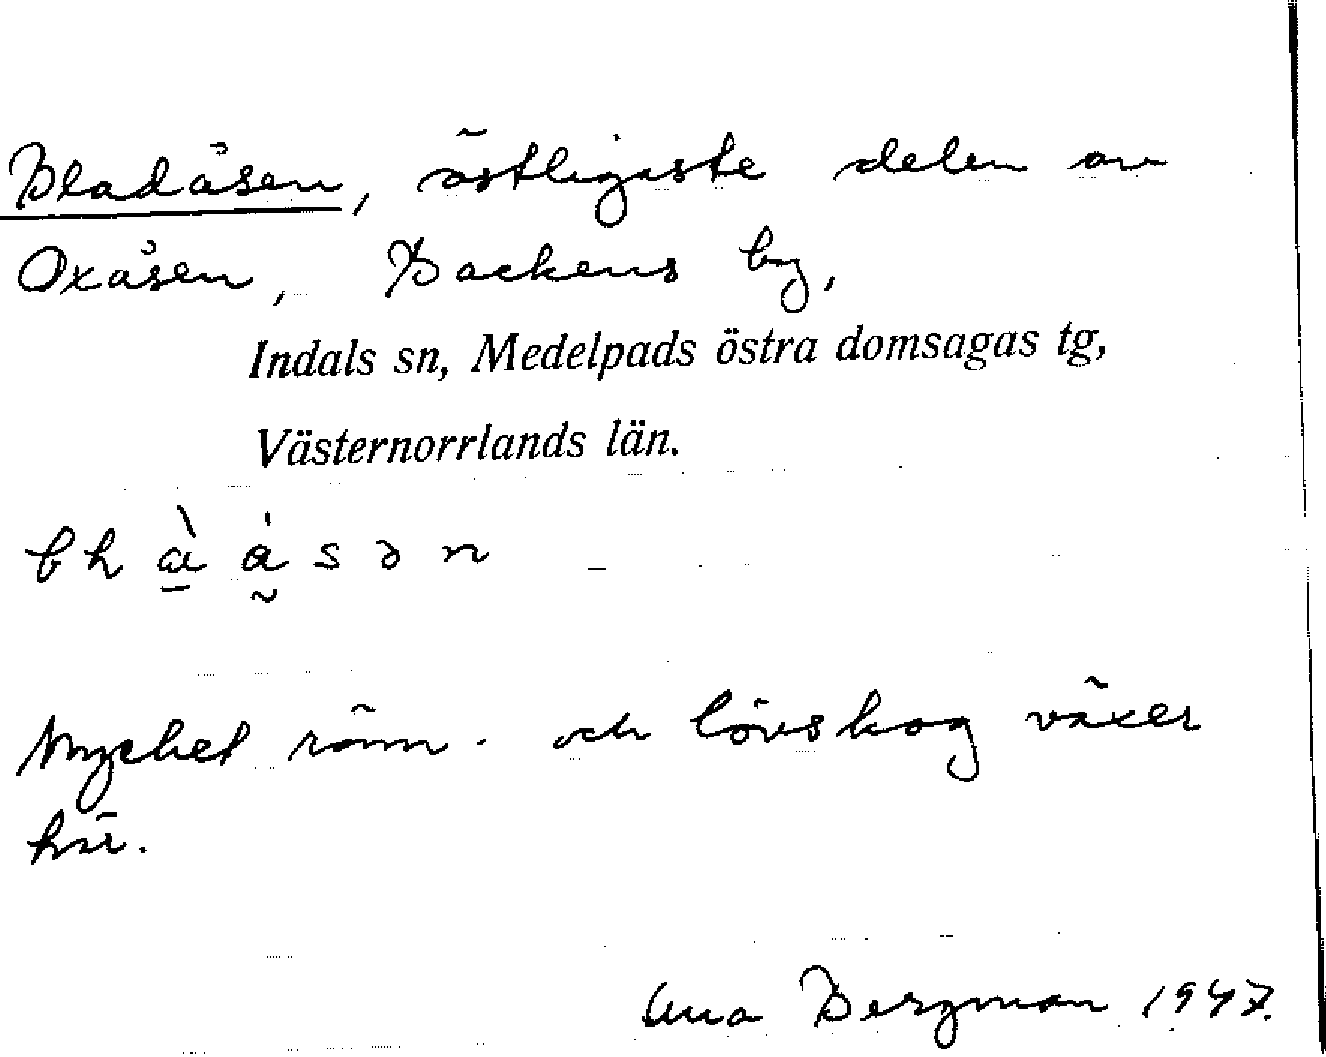 Bladåsen, östligaste delen av
Oxåsen, Backens by,
Indals sn, Medelpads östra domsagas tg,
Västernorrlands län.
Mycket rönn- och lövskog växer
här.
Bergman 1947.